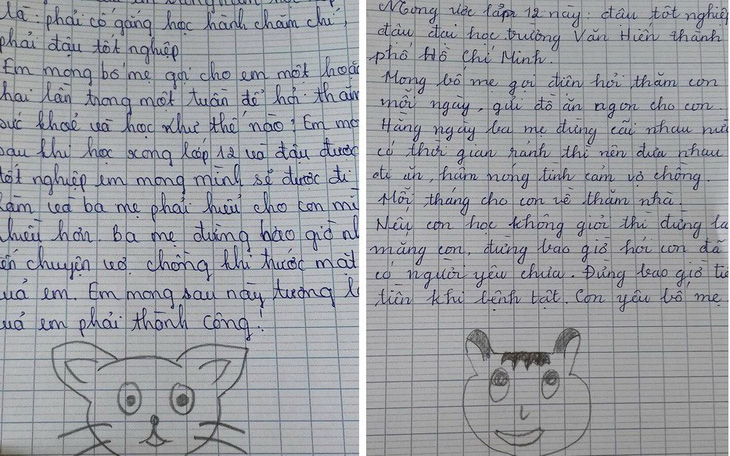 là: phải cố gắng học hành chăm chỉ,
phải đậu tốt nghiệp
Em mong bố mẹ gọi cho em một hoặc
hai lần trong một tuần để hỏi thăm
sức khoẻ và học như thế nào! Em mo
sau khi học xong lớp 12 và đậu được
tốt nghiệp em mong mình sẽ được đi
làm và ba mẹ phải hiểu cho con mì
nhiều hơn. Ba mẹ đừng bao giờ nh
ến chuyện vợ chồng khi trước mặt
uả em. Em mong sau này tương l
uả em phải thành công!
Mong ước lớp 12 này: đậu tốt nghiệp
đậu đại học trường Văn Hiến thành
phố Hồ Chí Minh.
Mong bố mẹ gọi điện hỏi thăm con
mỗi ngày, gửi đồ ăn ngon cho con.
Hằng ngày ba mẹ đừng cãi nhau nữa
có thời gian rảnh thì nên đưa nhau
đi ăn, hâm nóng tình cảm vợ chồng.
Mỗi tháng cho con về thăm nhà.
Nếu con học không giỏi thì đừng la
mắng con, đừng bao giờ hỏi con đã
có người yêu chưa. Đừng bao giờ ti
tiền khi bệnh tật. Con yêu bố mẹ